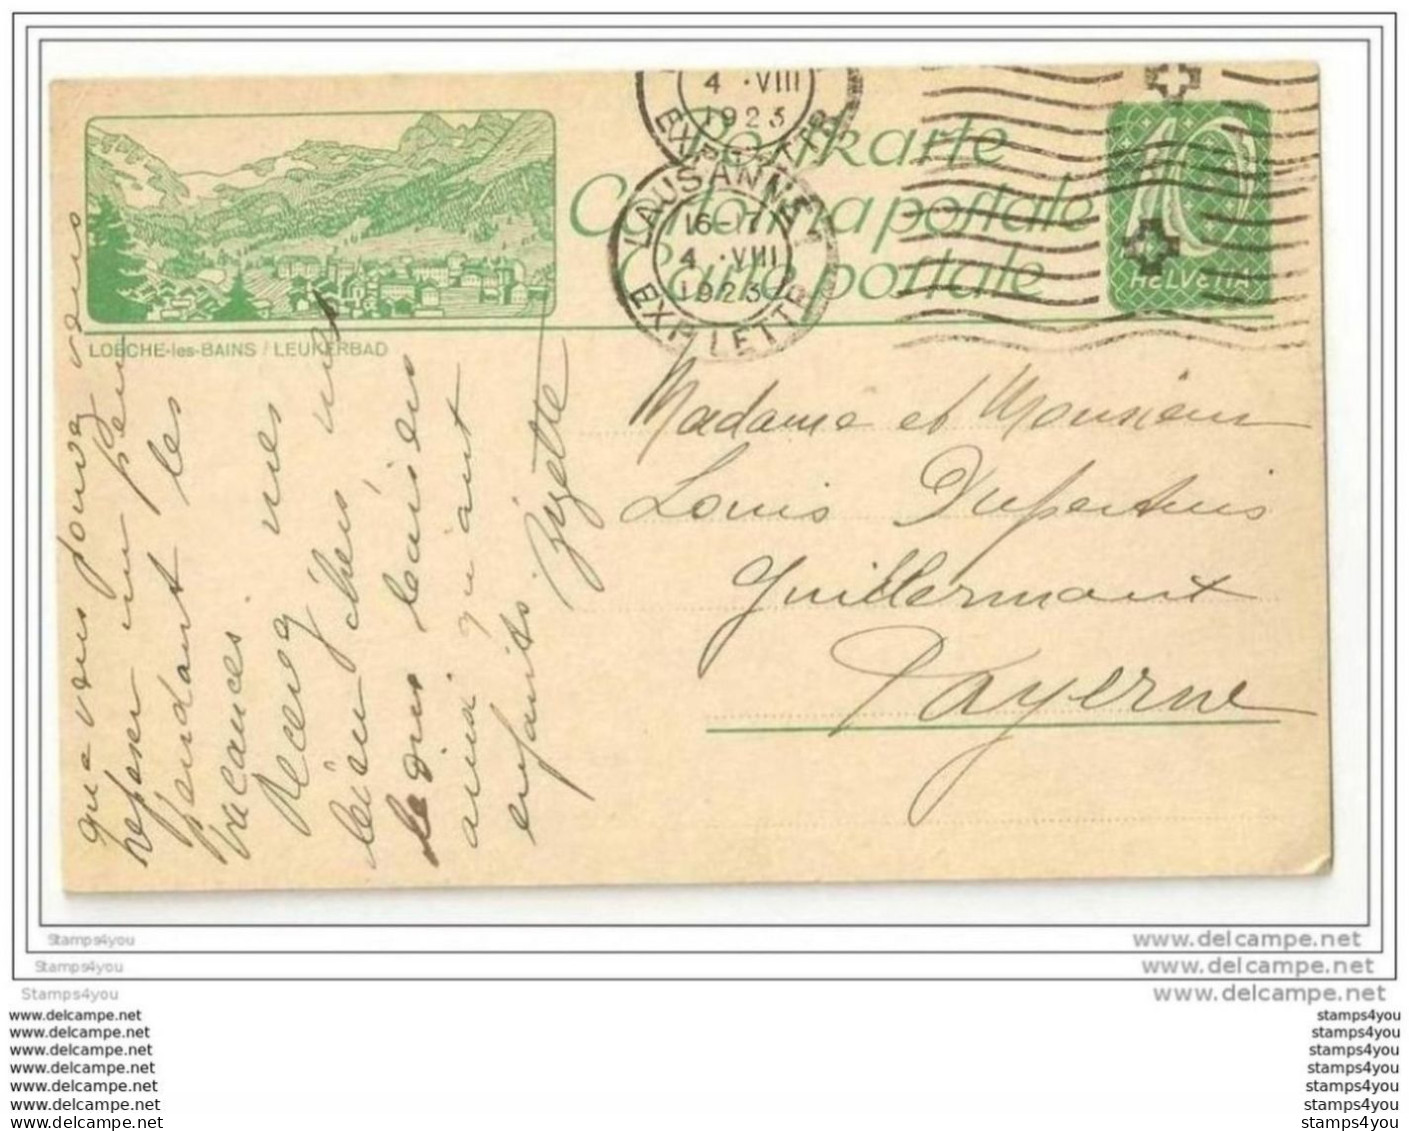 4 · VIII
1923
LAUSANNE 1
16-17
4 · VIII
1923
EXP. LETTR.
Postkarte
Cartolina postale
Carte postale
10
HELVETIA
LOÈCHE-les-BAINS / LEUKERBAD
Madame et Monsieur
Louis Dupertuis
Guillermaux
Payerne
que vous pouvez vous
reposer un peu
pendant les
vacances
Recevez mes
bien chers mes
bons baisers
ainsi qu'aux
enfants
Zizette
Stamps4you
Stamps4you
Stamps4you
www.delcampe.net
www.delcampe.net
www.delcampe.net
www.delcampe.net
www.delcampe.net
www.delcampe.net
www.delcampe.net
www.delcampe.net
www.delcampe.net
www.delcampe.net
stamps4you
stamps4you
stamps4you
stamps4you
stamps4you
stamps4you
stamps4you